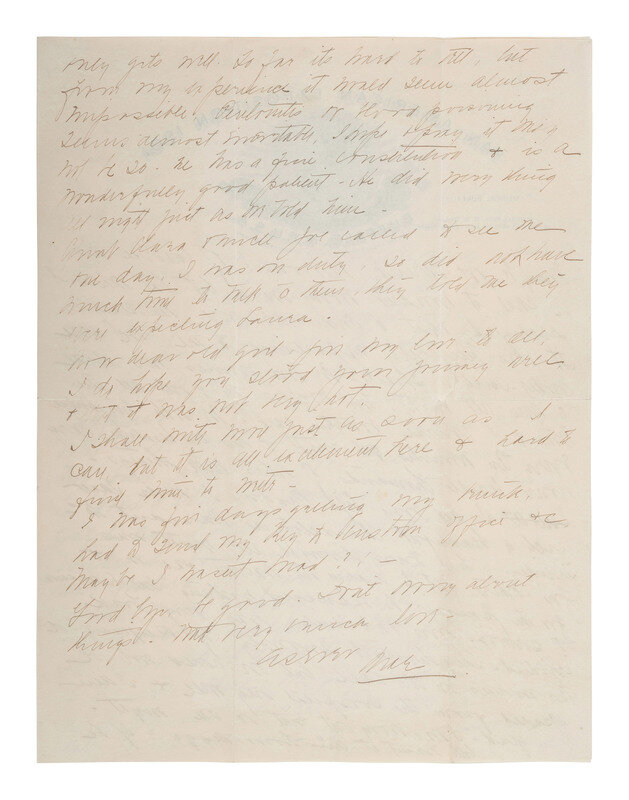 only gets well. So far its hard to tell, but
from my experience it would seem almost
impossible. Peritonitis or blood poisoning
seems almost inevitable, I hope & pray it may
not be so. He has a fine constitution & is a
wonderfully good patient - He did everything
all night just as I told him -
Aunt Clara & Uncle Joe called to see me
one day. I was on duty, so did not have
much time to talk to them, they told me they
were expecting Laura.
Now dear old girl, give my love to all,
I do hope you stood your journey well
& it was not very hot.
I shall write more just as soon as I
can, but it is all excitement here & hard to
find time to write -
I was five days getting my trunk,
had to send my key to Custom Office &c
Maybe I wasent mad?! -
Good bye. be good. Dont worry about
things. With very much love -
As ever